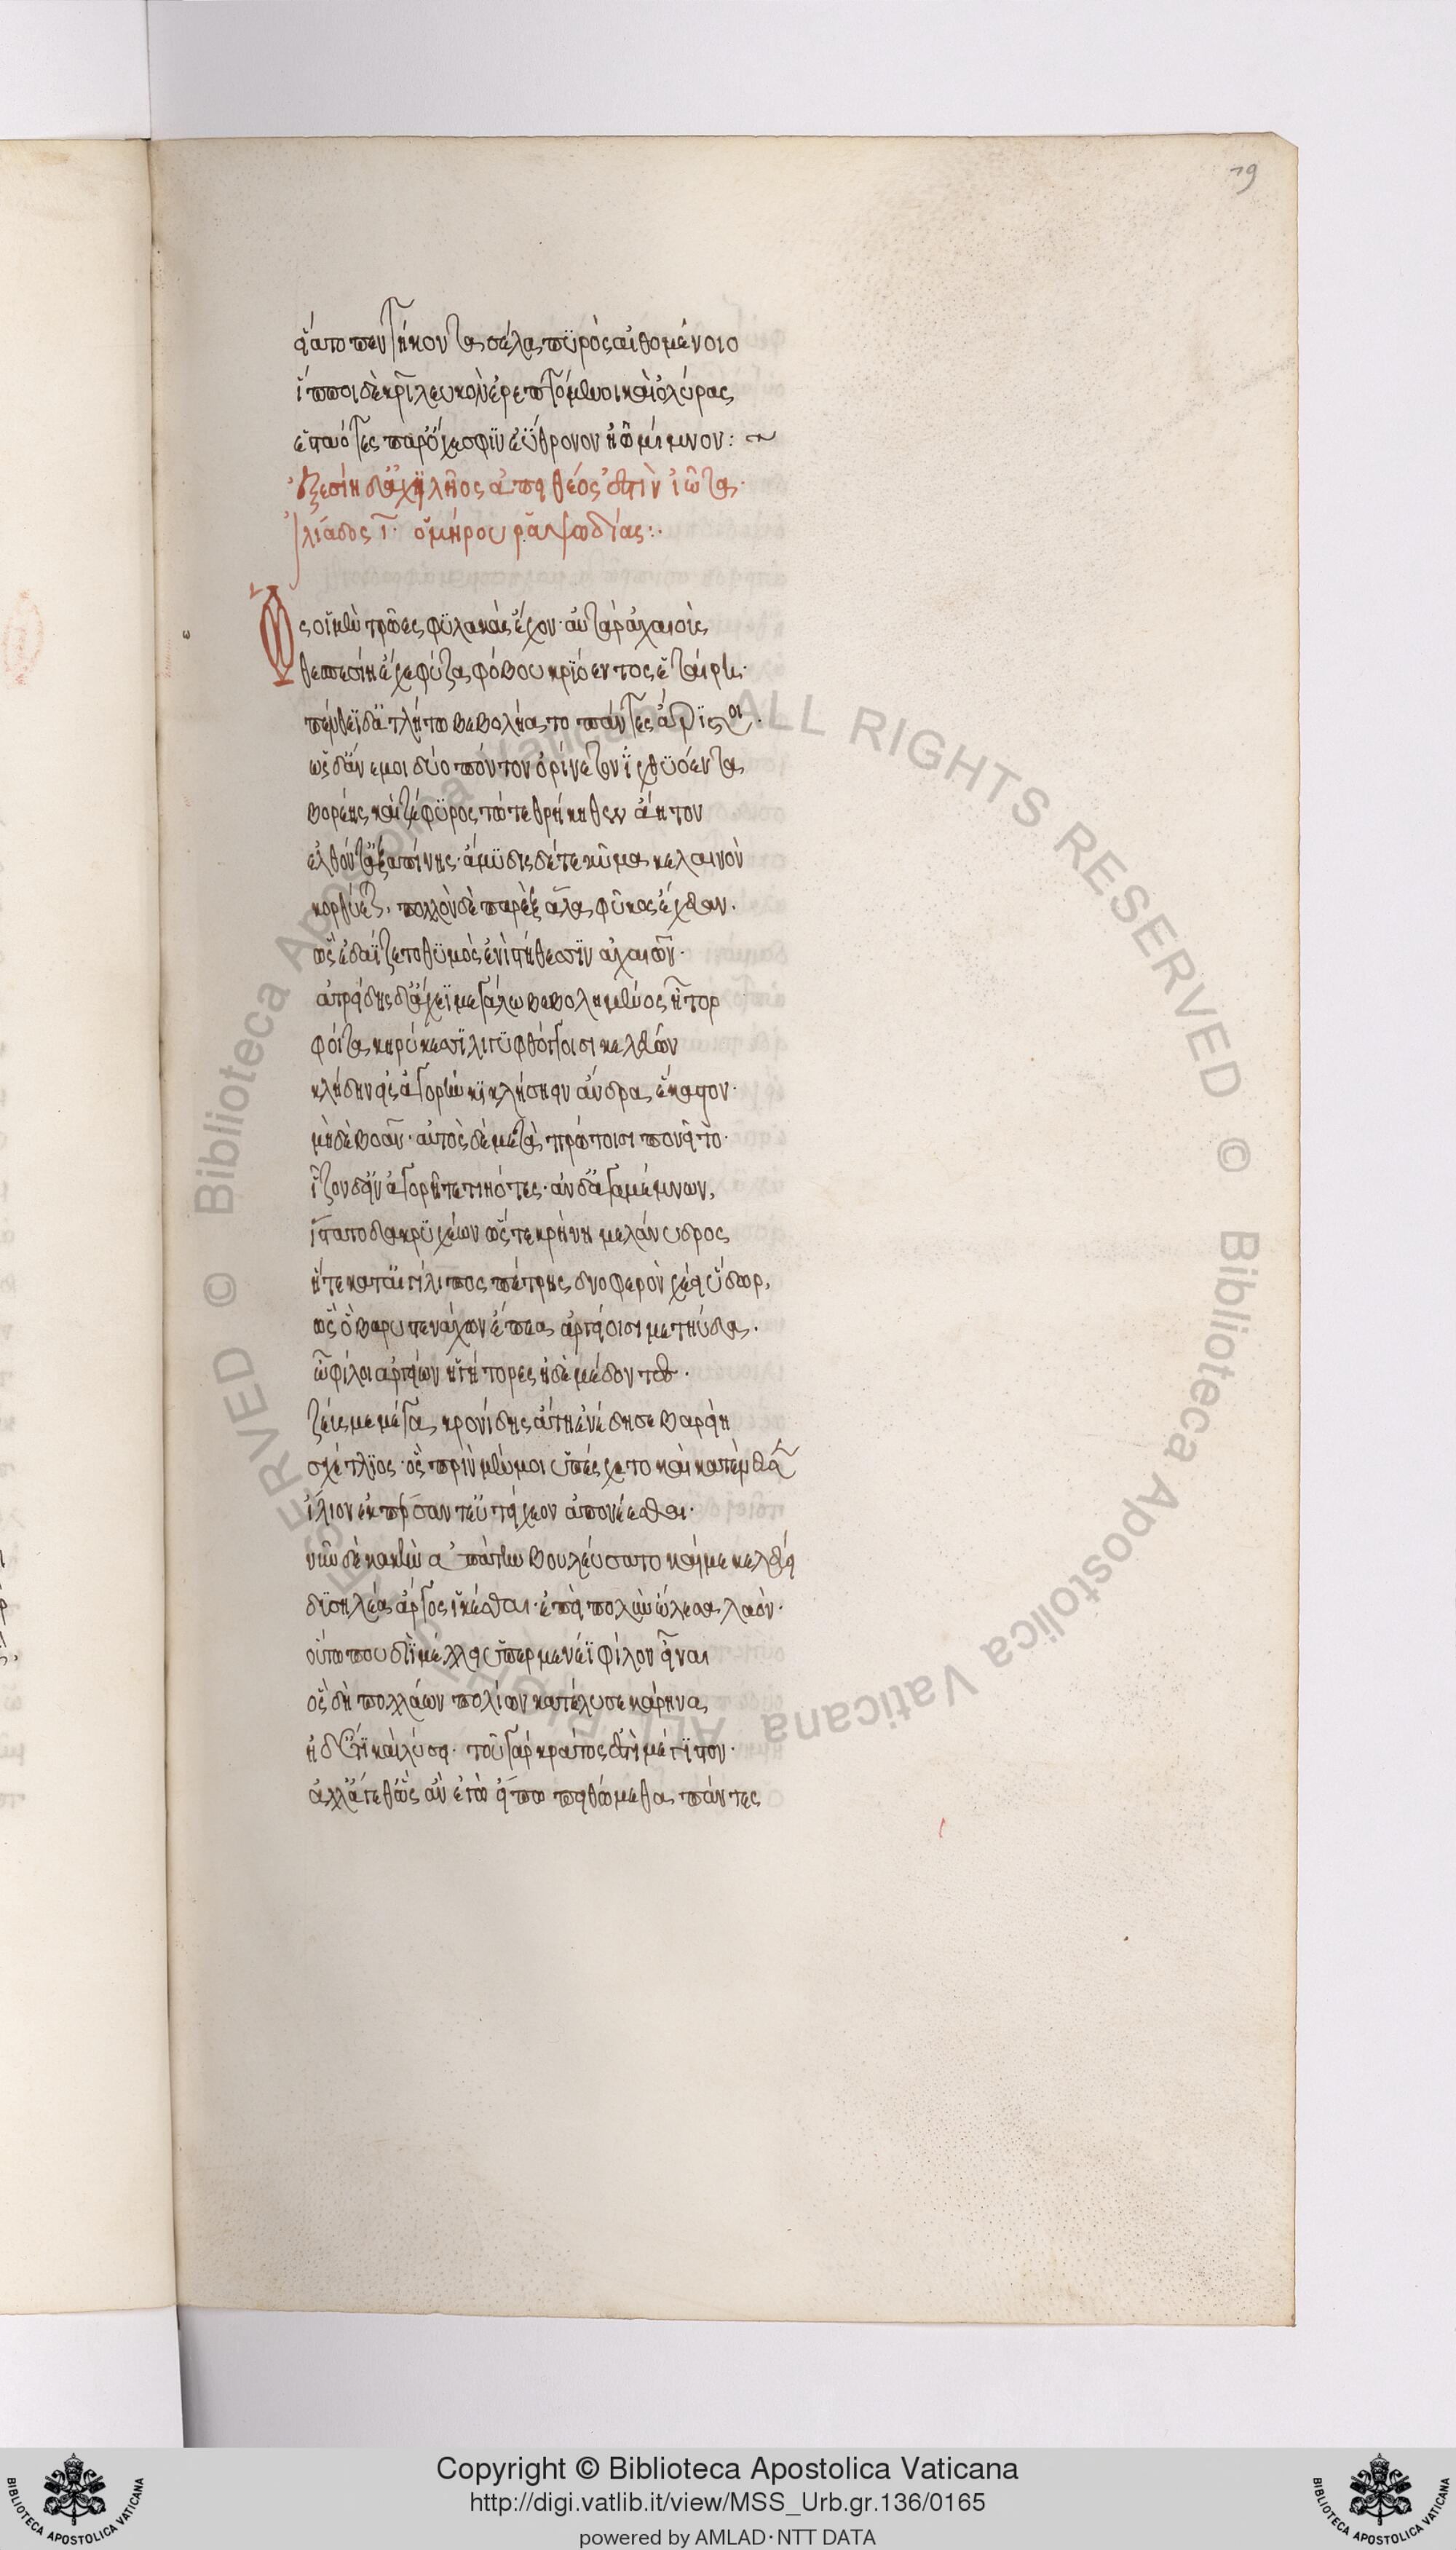 79
εἵατο πεντήκοντα σέλα πυρὸς αἰθομένοιο
ἵπποι δὲ κρῖ λευκὸν ἐρεπτόμενοι καὶ ὀλύρας
ἑσταότες παρ' ὄχεσφιν ἐΰθρονον ἠῶ μίμνον: ~
ἐξεσίη δ' ἀχιλῆος ἀπειθέος ἐστὶν ἰῶτα·
Ἰλιάδος ῑ· ὁμήρου ῥαψωδίας:·
Ὣς οἱ μὲν τρῶες φυλακὰς ἔχον· αὐτὰρ ἀχαιοὺς
θεσπεσίη ἔχε φύζα φόβου κρυόεντος ἑταίρη·
πένθεϊ δ' ἀτλήτω βεβολήατο πάντες ἄριστοι·
ὡς δ' ἄνεμοι δύο πόντον ὀρίνετον ἰχθυόεντα
βορέης καὶ ζέφυρος τώτε θρήκηθεν ἄητον
ἐλθόντ' ἐξαπίνης· ἄμυδις δέ τε κῦμα κελαινὸν
κορθύεται, πολλὸν δὲ παρὲξ ἅλα φῦκος ἔχευαν.
ὣς ἐδαΐζετο θυμὸς ἐνὶ στήθεσσιν ἀχαιῶν·
ἀτρείδης δ' ἄχεϊ μεγάλω βεβολημένος ἦτορ
φοίτα κηρύκεσσι λιγυφθόγγοισι κελεύων
κλήδην εἰς ἀγορὴν κικλήσκειν ἄνδρα ἕκαστον·
μὴ δὲ βοᾶν· αὐτὸς δὲ μετὰ πρώτοισι πονεῖτο·
ἷζον δ' εἰν ἀγορῆ τετιηότες· ἂν δ' ἀγαμέμνων,
ἵστατο δακρυχέων ὥς τε κρήνη μελάνυδρος
ἥτε κατ' αἰγίλιπος πέτρης δνοφερὸν χέει ὕδωρ,
ὣς ὃ βαρυστενάχων ἔπεα ἀργείοισι μετηύδα·
ὦ φίλοι ἀργείων ἡγήτορες ἠδὲ μέδοντες·
ζεύς με μέγας κρονίδης ἄτη ἐνέδησε βαρείη
σχέτλιος· ὃς πρὶν μέν μοι ὑπέσχετο καὶ κατένευσεν
ἴλιον ἐκπέρσαντ' εὐτείχεον ἀπονέεσθαι·
νῦν δὲ κακὴν ἀπάτην βουλεύσατο καί με κελεύει
δυσκλέα ἄργος ἱκέσθαι· ἐπεὶ πολὺν ὤλεσα λαόν·
οὕτω που διῒ μέλλει ὑπερμενέϊ φίλον εἶναι
ὃς δὴ πολλάων πολίων κατέλυσε κάρηνα
ἠδ' ἔτι καὶ λύσει· τοῦ γὰρ κράτος ἐστὶ μέγιστον·
ἀλλ' ἄγεθ' ὡς ἂν ἐγὼ εἴπω πειθώμεθα πάντες
ALL RIGHTS RESERVED © Biblioteca Apostolica Vaticana
Copyright © Biblioteca Apostolica Vaticana
http://digi.vatlib.it/view/MSS_Urb.gr.136/0165
powered by AMLAD·NTT DATA
BIBLIOTECA APOSTOLICA VATICANA
BIBLIOTECA APOSTOLICA VATICANA